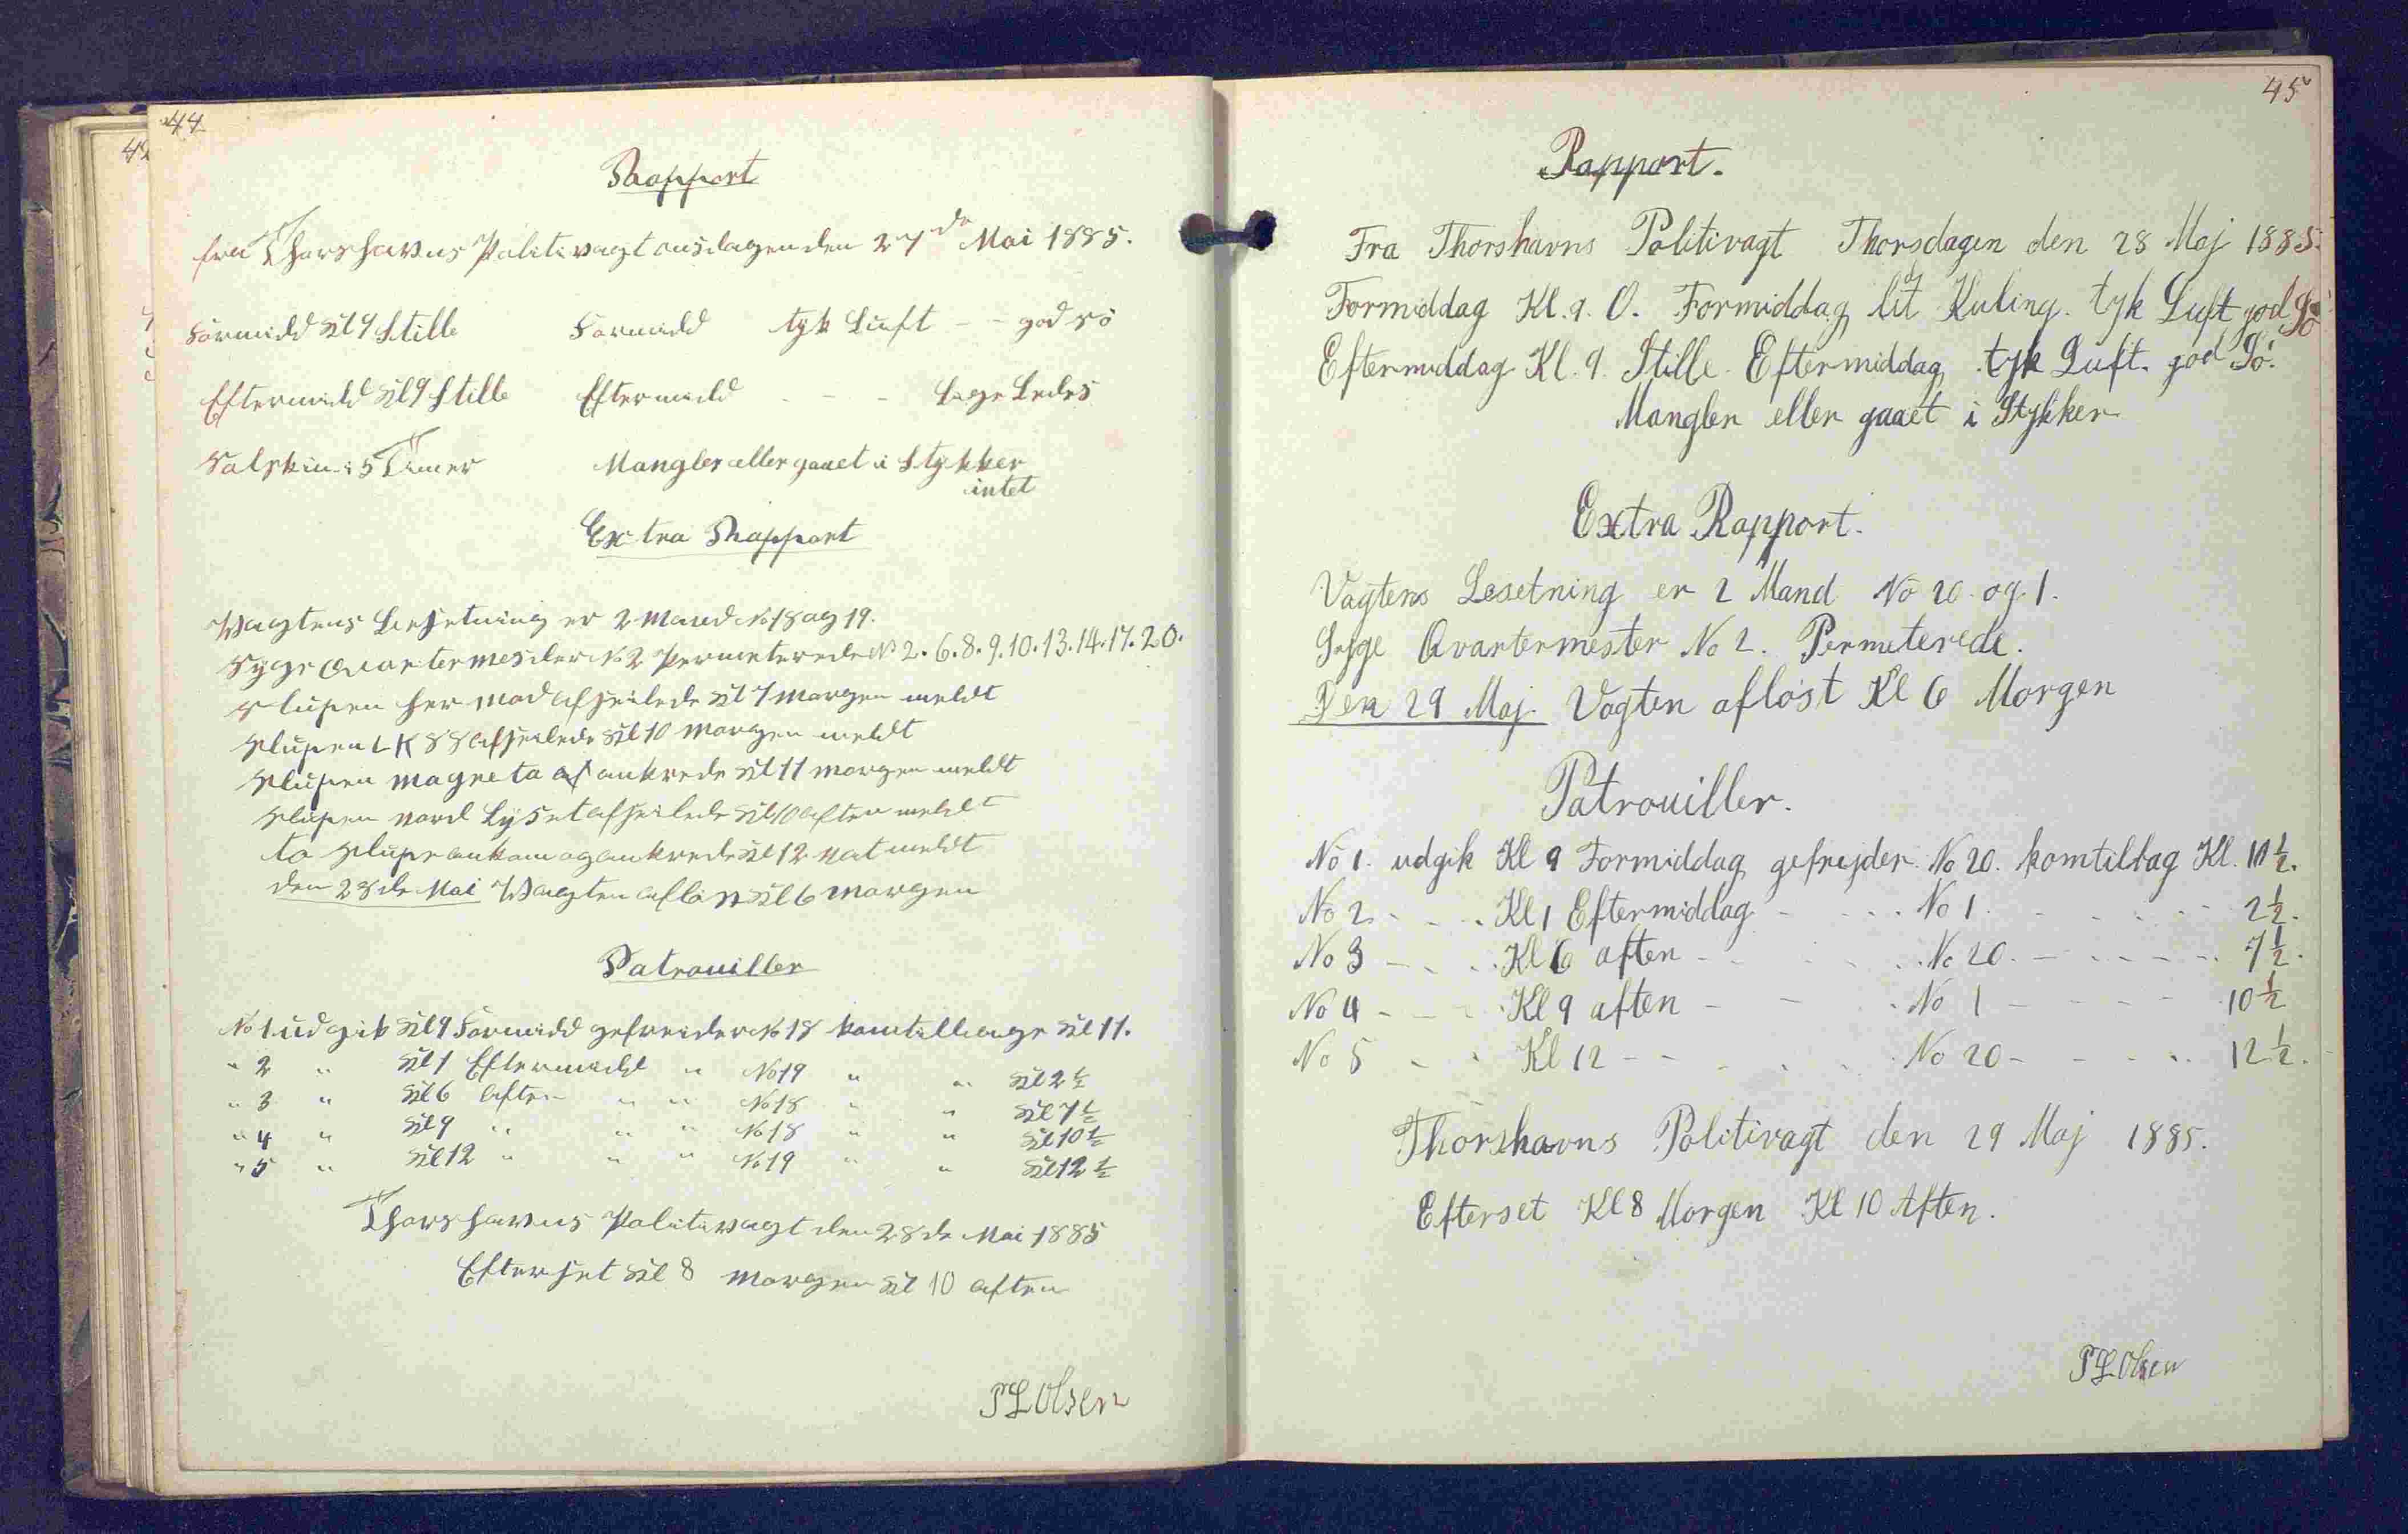 44
42
Rapport
fra Thorshavns Politivagt onsdagen den 27de Mai 1885.
Formidd Kl 9 Stille Formidd tyk Luft - - god sö
Eftermidd Kl 9 Stille Eftermidd - - - Lige Ledes
Solskin i 5 Timer Mangler eller gaaet i Stykker
intet
Extra Rapport
Wagtens Besetning er 2 Mand No 18 og 19.
Syge Qvartermester No 2 Permeterede No 2. 6. 8. 9. 10. 13. 14. 17. 20.
Slupen her mod afseilede Kl 7 morgen meldt
Slupen LK 88 afseilede Kl 10 morgen meldt
Slupen magreta af ankrede Kl 11 morgen meldt
Slupen nord Lyset afseilede Kl 10 aften meldt
to Slupe ankom og ankrede Kl 12 nat meldt
den 28de Mai Wagten aflöst Kl 6 morgen
Patrouiller
No 1 udgik Kl 9 Formidd gefreider No 18 kom tillbage Kl 11.
" 2 " Kl 1 Eftermidd " No 19 " " Kl 2 1/2
" 3 " Kl 6 aften " " No 18 " " Kl 7 1/2
" 4 " Kl 9 " " " No 18 " " Kl 10 1/2
" 5 " Kl 12 " " " No 19 " " Kl 12 1/2
Thorshavns Politivagt den 28de Mai 1885
Efterset Kl 8 morgen Kl 10 aften
P L Olsen
45
Rapport.
Fra Thorshavns Politivagt Thorsdagen den 28 Maj 1885.
Formiddag Kl. 9. O. Formiddag lit Kuling. tyk Luft god Sö
Eftermiddag Kl. 9. Stille. Eftermiddag tyk Luft. god Sö.
Mangler eller gaaet i Stykker
Extra Rapport.
Vagtens Besetning er 2 Mand No 20 og 1.
Syge Qvartermester No 2. Permeterede.
Den 29 Maj. Vagten aflöst Kl 6 Morgen
Patrouiller.
No 1. udgik Kl 9 Formiddag gefrejder No 20. kom tilbag Kl. 10 1/2.
No 2 - - . Kl 1 Eftermiddag - . . . No 1. - - - - 2 1/2.
No 3 - . . . Kl 6 aften - - - - . No 20. - - - - - 7 1/2.
No 4 - - - Kl 9 aften - - - No 1 - - - - - 10 1/2
No 5 - - Kl 12 - - - - - No 20 - - - - 12 1/2.
Thorshavns Politivagt den 29 Maj 1885.
Efterset Kl 8 Morgen Kl 10 Aften.
P L Olsen